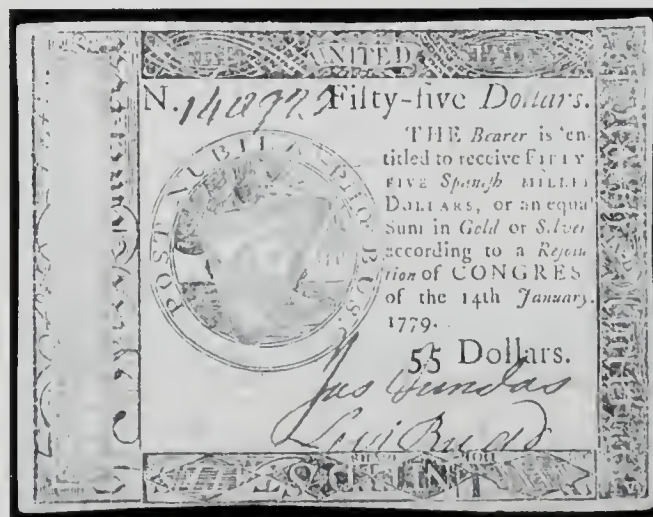 UNITED
N. Fifty-five Dollars.
POST NUBILA PHŒBUS.
THE Bearer is en-
titled to receive FIFTY
FIVE Spanish MILLED
DOLLARS, or an equal
Sum in Gold or Silver
according to a Resolu
tion of CONGRES
of the 14th January,
1779.
55 Dollars.
Jas Dundas
Levi Budd